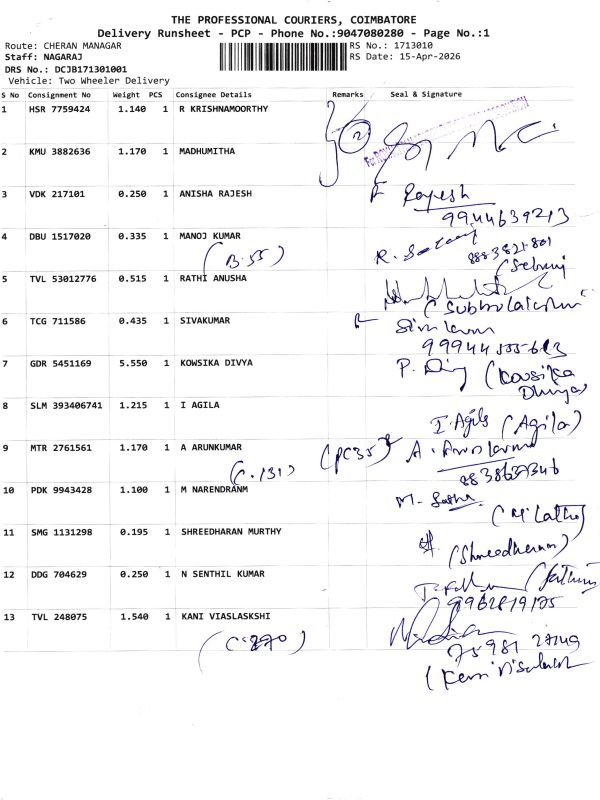 THE PROFESSIONAL COURIERS, COIMBATORE
Delivery Runsheet - PCP - Phone No.:9047080280 - Page No.:1
Route: CHERAN MANAGAR
RS No.: 1713010
Staff: NAGARAJ
RS Date: 15-Apr-2026
DRS No.: DCJB171301001
Vehicle: Two Wheeler Delivery
S No Consignment No Weight PCS Consignee Details Remarks Seal & Signature
1 HSR 7759424 1.140 1 R KRISHNAMOORTHY
2
2 KMU 3882636 1.170 1 MADHUMITHA
3 VDK 217101 0.250 1 ANISHA RAJESH Rajesh
9944639213
4 DBU 1517020 0.335 1 MANOJ KUMAR
(B.55) 8883821801
5 TVL 53012776 0.515 1 RATHI ANUSHA
(Subbulakshmi
6 TCG 711586 0.435 1 SIVAKUMAR
7 GDR 5451169 5.550 1 KOWSIKA DIVYA P.
(Kousika
Dhivya
8 SLM 393406741 1.215 1 I AGILA
I. Agila (Agila)
9 MTR 2761561 1.170 1 A ARUNKUMAR (PC35)
(C.131)
10 PDK 9943428 1.100 1 M NARENDRANM
11 SMG 1131298 0.195 1 SHREEDHARAN MURTHY
(Shreedharan)
12 DDG 704629 0.250 1 N SENTHIL KUMAR
13 TVL 248075 1.540 1 KANI VIASLASKSHI
(C.270)